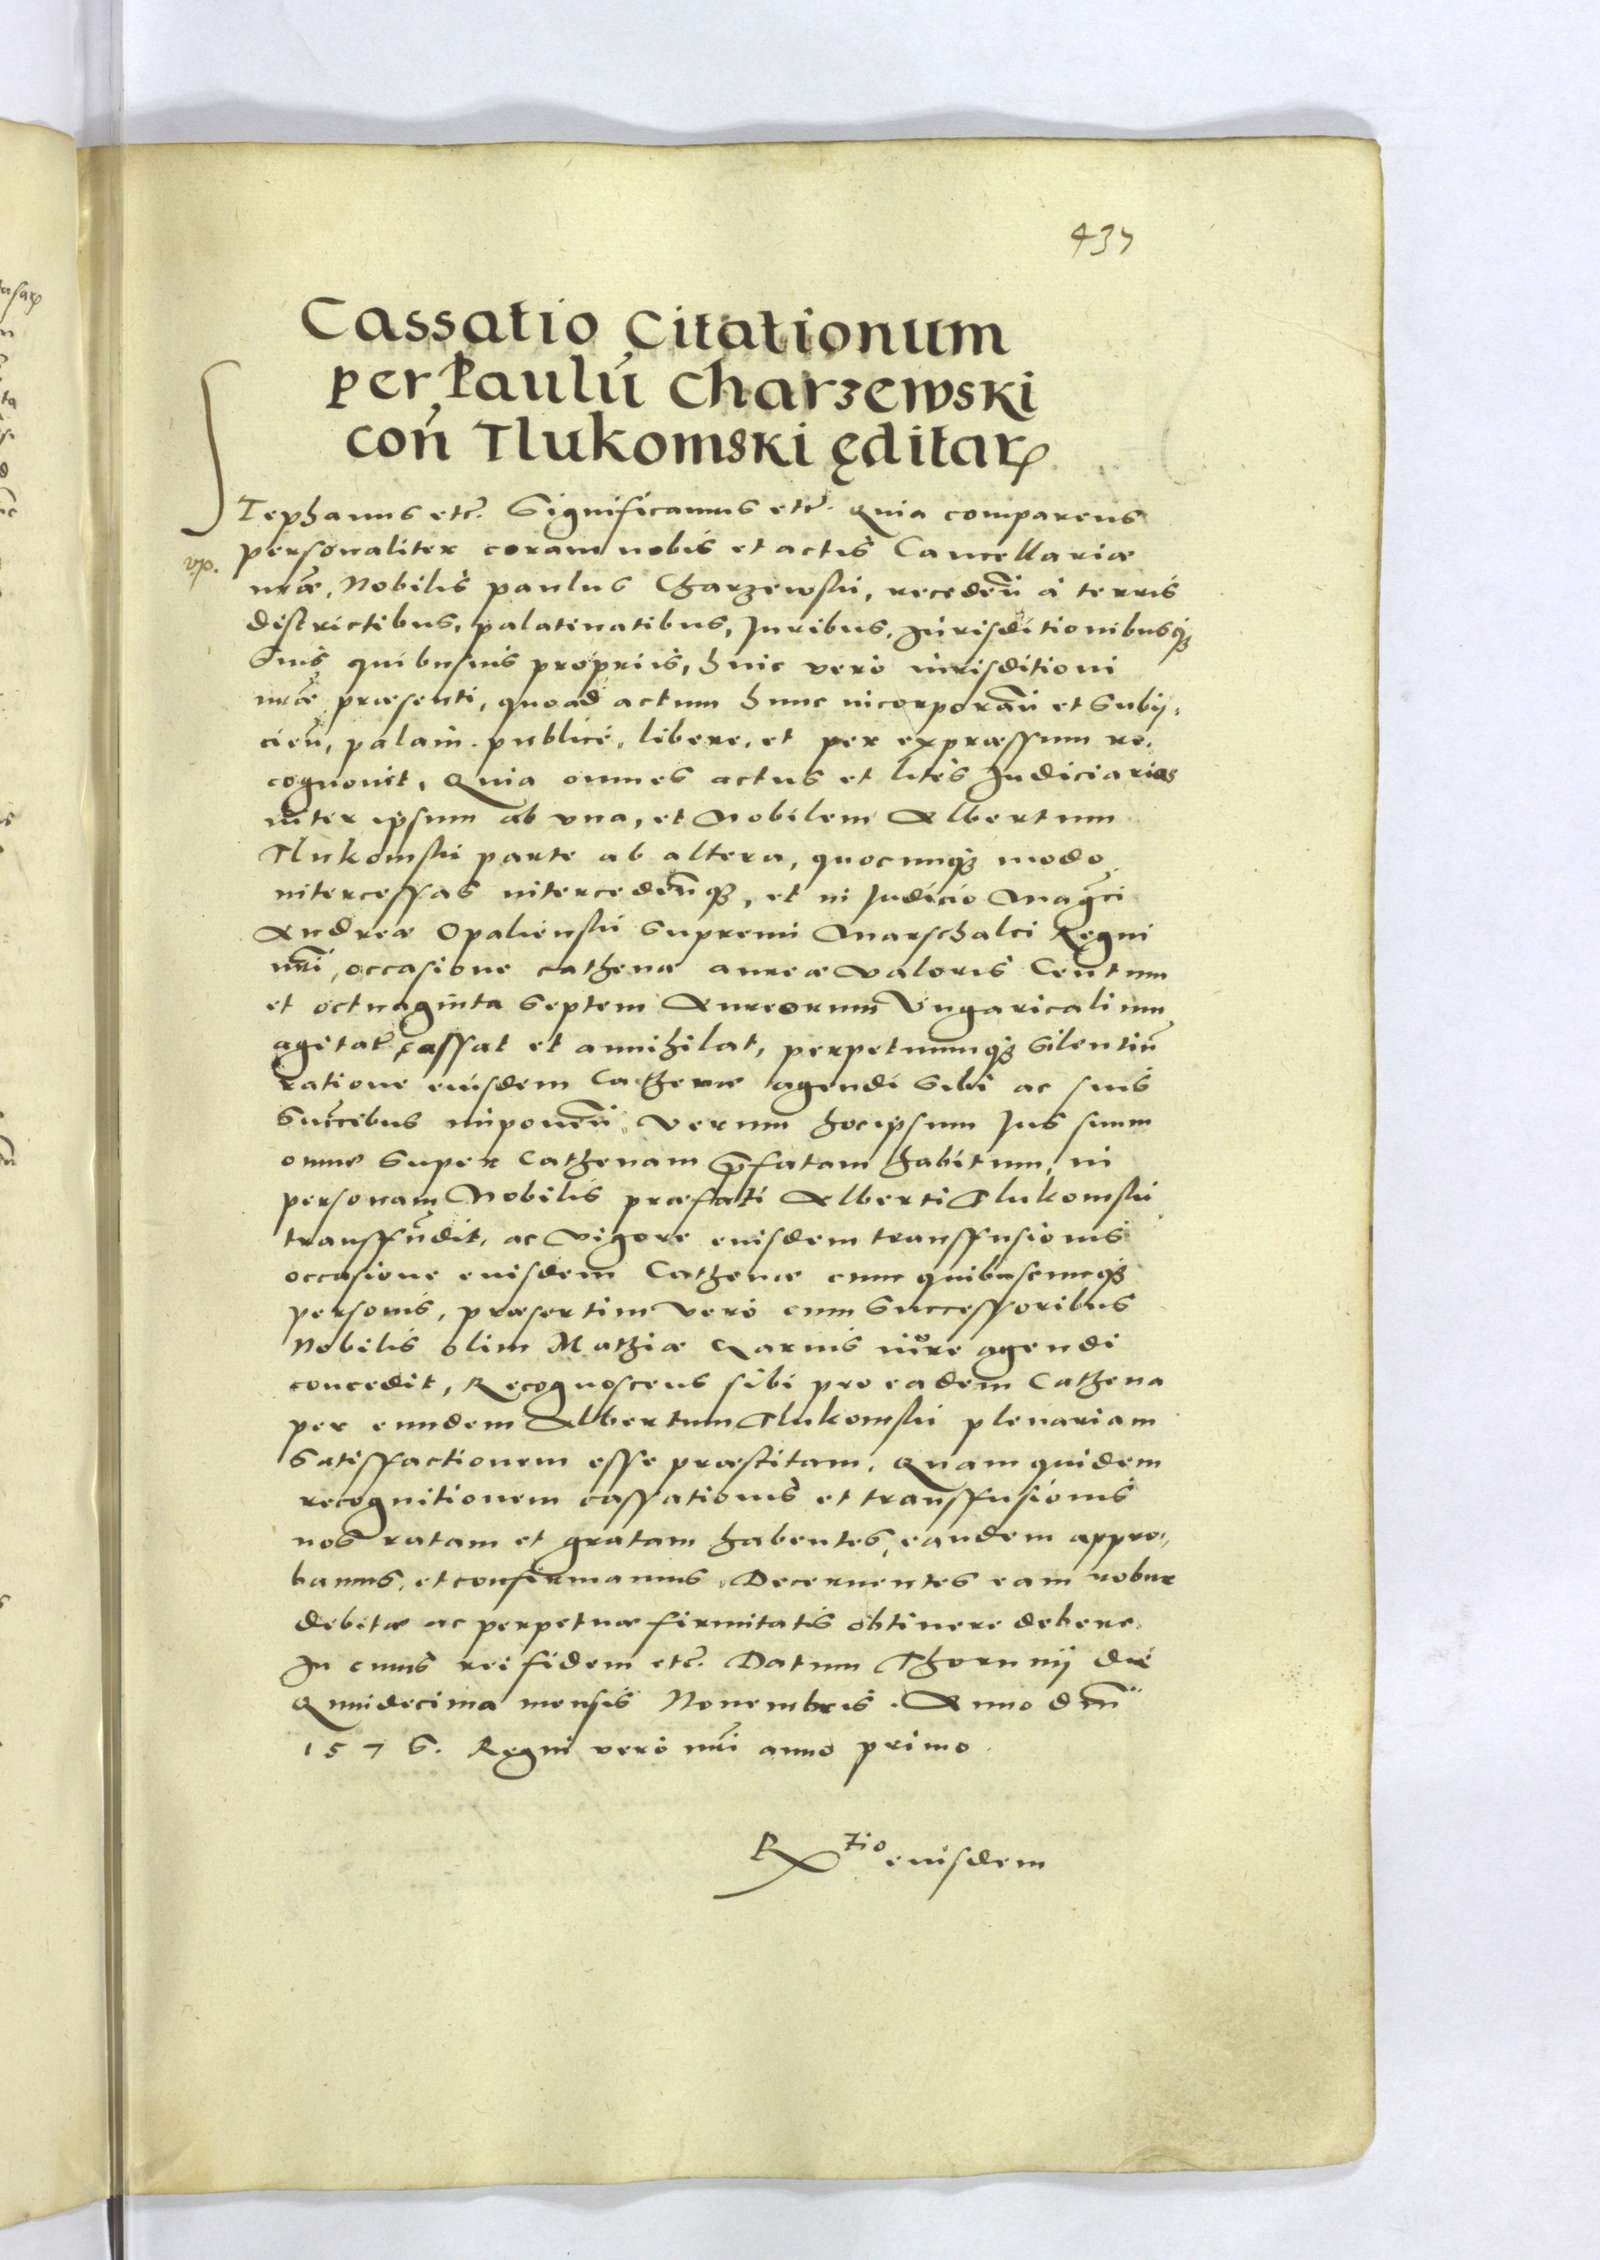 437
Cassatio Citationum
per Paulū Charzewski
con̄ Tlukomski ęditarꝝ
STephanus etc̄. Significamus etc̄. Quia comparens
vp.
personaliter coram nobis et actis Cancellariæ
nr̄æ, Nobilis paulus Charzewski, receden̄ à terris
districtibus, palatinatibus, Juribus, Jurisditionibusqꝫ
Suis quibusuis proprijs, huic verò iurisditioni
nr̄æ præsenti, quoad actum hunc incorporan̄ et Subij,
cien̄, palam. publicè, libere, et per expræssum re,
cognouit, Quia omnes actus et lites Judiciarias
inter ipsum ab vna, et Nobilem Albertum
Tlukomski parte ab altera, quocunqꝫ modo
intercessas interceden̄qꝫ, et in Judicio Mag̅ci
Andreæ Opalienski Supremi Marschalci Regni
nr̄i, occasione cathenæ aureæ valoris Centum
et octuaginta Septem Aureorum Vngaricalium
agitat̄ cassat et annihilat, perpetuumqꝫ Silentiū
ratione eiusdem Cathenæ agendi Sibi ac suis
Succ̄ibus imponen̄. Verum hocipsum Jus suum
omne Super Cathenam p̄fatam habitum, in
personam Nobilis præfati Alberti Tlukomski
transffūdit, ac vigore euisdem transffusionis
occasione euisdem Cathenæ cum quibuscunqꝫ
personis, præsertim verò cum Successoribus
Nobilis olim Mathiæ Qarnis iure agendi
concedit, Recognoscens sibi pro eadem Cathena
per eundem Albertum Tlukomski plenariam
Satisffactionem esse præstitam, Quam quidem
recognitionem cassationis et transffusionis
nos ratam et gratam habentes, eandem appro,
bamus, et confirmamus, Decernentes eam robur
debitæ ac perpetuæ firmitatis obtinere debere.
In cuius rei fidem etc̄. Datum Thorunij die
Quindecima mensis Nouembris. Anno dn̄i
1576. Regni verò nr̄i anno primo.
Rtio euisdem